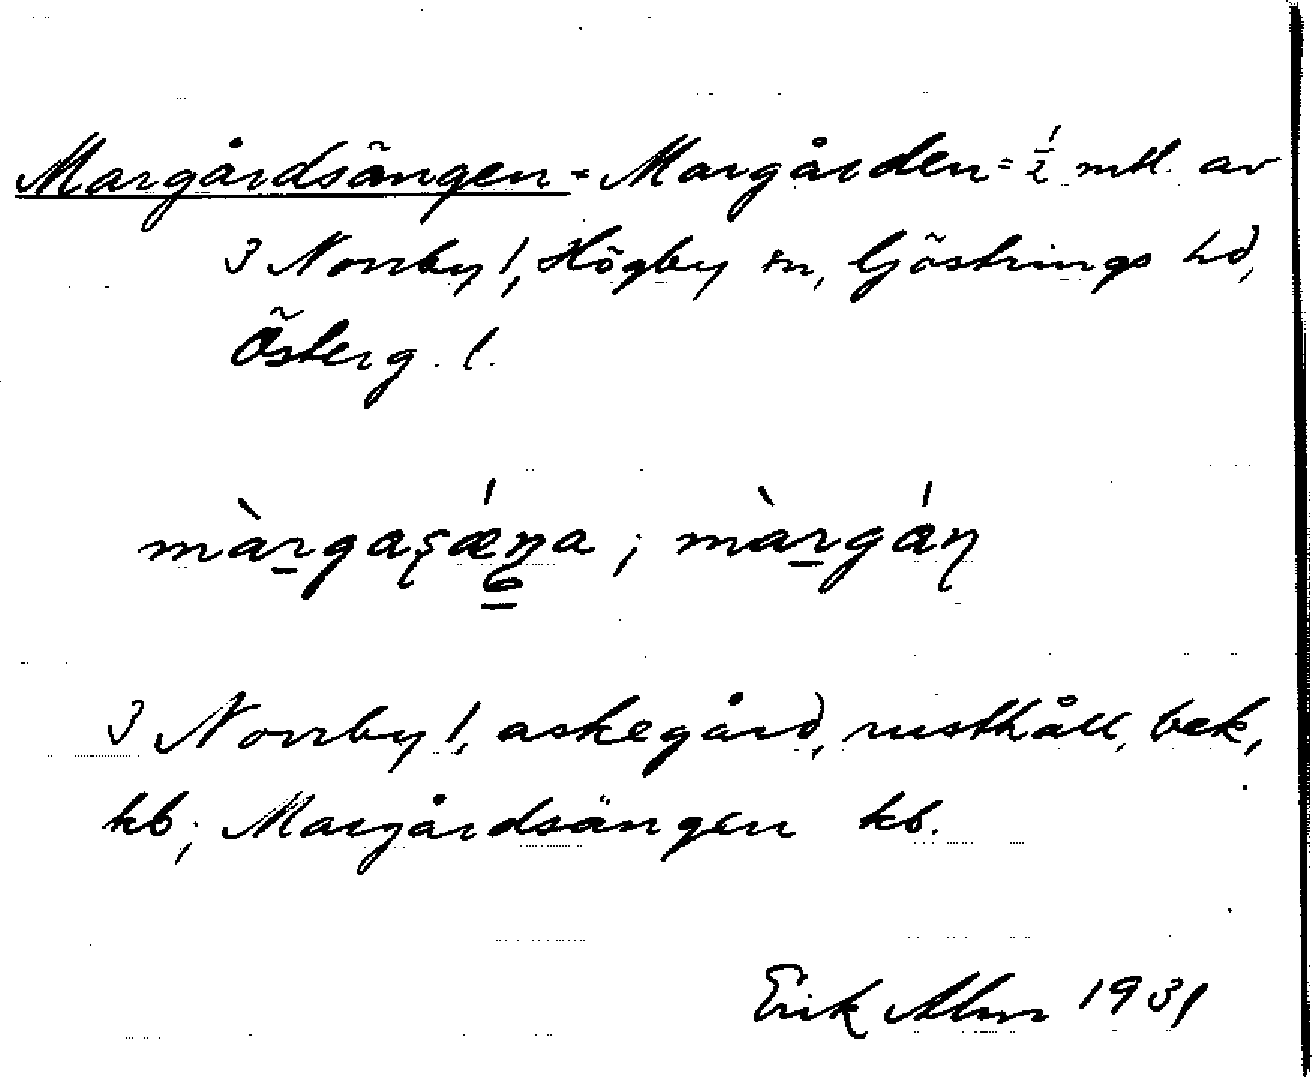 Margårdsängen = Margården = ½ mtl. av
3 Norrby 1, Högby sn, Göstrings hd,
Österg. l.
màrgaʂǽŋa ; màrgáɳ
3 Norrby 1, askegård, rusthåll, bek,
kb; Margårdsängen kb.
Erik Alm 1931